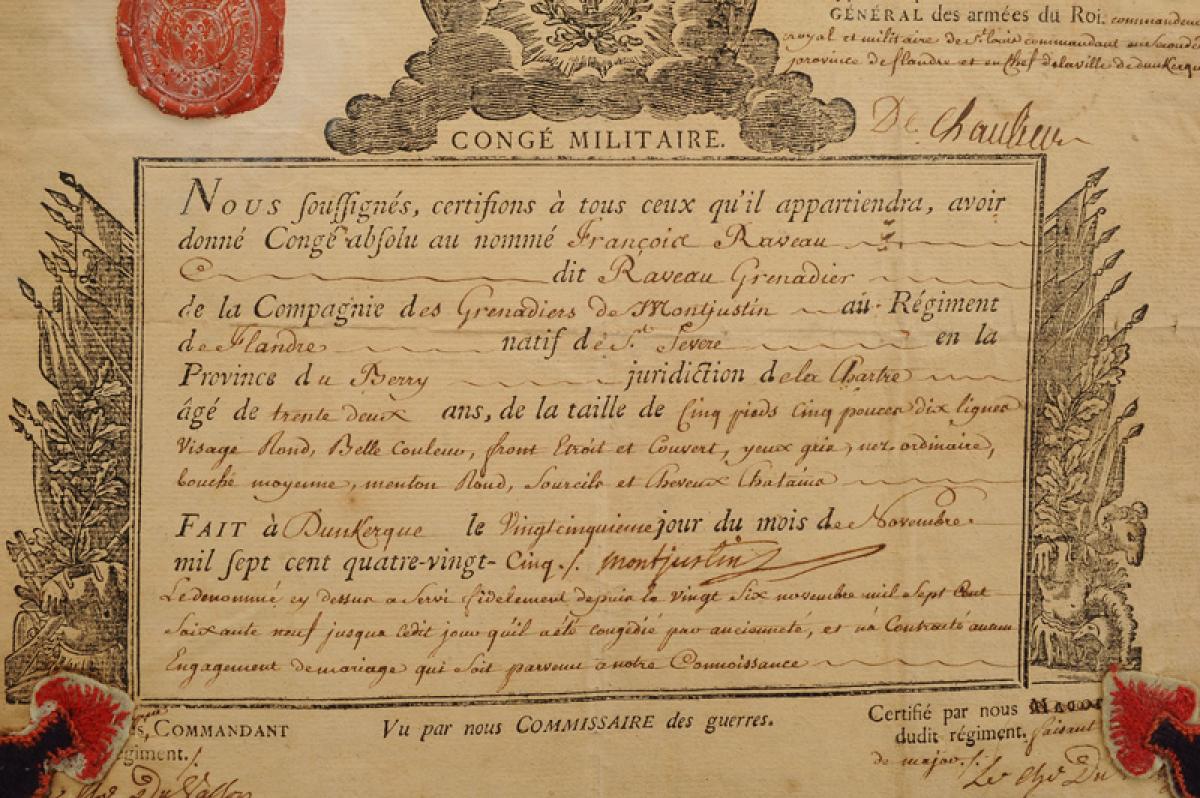 GÉNÉRAL des armées du Roi. commandeur
royal et militaire de St. Louis commandant en second
province de flandre et en Chef de la ville de dunkerque
De Chaulieu
CONGÉ MILITAIRE.
Nous souſſignés, certifions à tous ceux qu'il appartiendra, avoir
donné Congé absolu au nommé François Raveau
dit Raveau Grenadier
de la Compagnie des Grenadiers de Montjustin au Régiment
de Flandre natif de St. Severe en la
Province du Berry juridiction de la Chartre
âgé de trente deux ans, de la taille de Cinq pieds Cinq pouces dix lignes
Visage Rond, Belle Couleur, front Etroit et Couvert, yeux gris, nez ordinaire,
bouche moyenne, menton Rond, Sourcils et Cheveux Chatains
FAIT à Dunkerque le Vingtcinquieme jour du mois de Novembre.
mil ſept cent quatre-vingt- Cinq ./. montjustin
Le denommé cy dessus a Servi fidelement depuis le vingt Six novembre mil Sept Cent
Soixante neuf jusqua cedit jour qu'il a été congédié par ancienneté, et n'a Contracté aucun
Engagement de mariage qui Soit parvenu a notre Connoissance
COMMANDANT Vu par nous COMMISSAIRE des guerres. Certifié par nous MAJOR
égiment. dudit régiment. faisant
de major ./.
Le chr Du